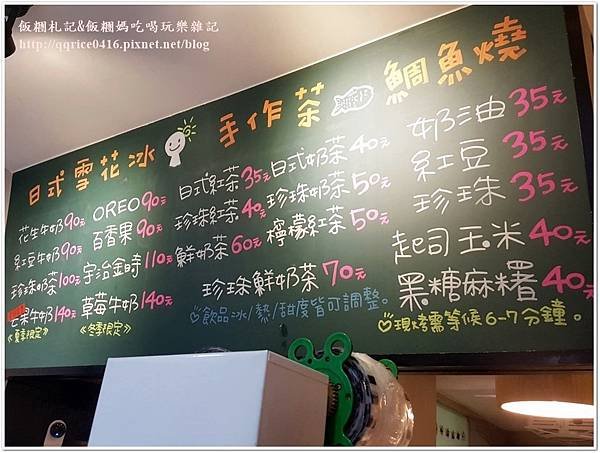 飯糰札記&飯糰媽吃喝玩樂雜記
http://qqrice0416.pixnet.net/blog
日式雪花冰
花生牛奶90元
紅豆牛奶90元
珍珠奶茶100元
芒果牛奶140元
≪夏季限定≫
OREO 90元
百香果90元
宇治金時110元
草莓牛奶140元
≪冬季限定≫
手作茶
日式紅茶35元
珍珠紅茶40元
鮮奶茶60元
日式奶茶40元
珍珠奶茶50元
檸檬紅茶50元
珍珠鮮奶茶70元
飲品冰/熱/甜度皆可調整。
鯛魚燒
奶油35元
紅豆35元
珍珠35元
起司玉米40元
黑糖麻糬40元
現烤需等候6-7分鐘。